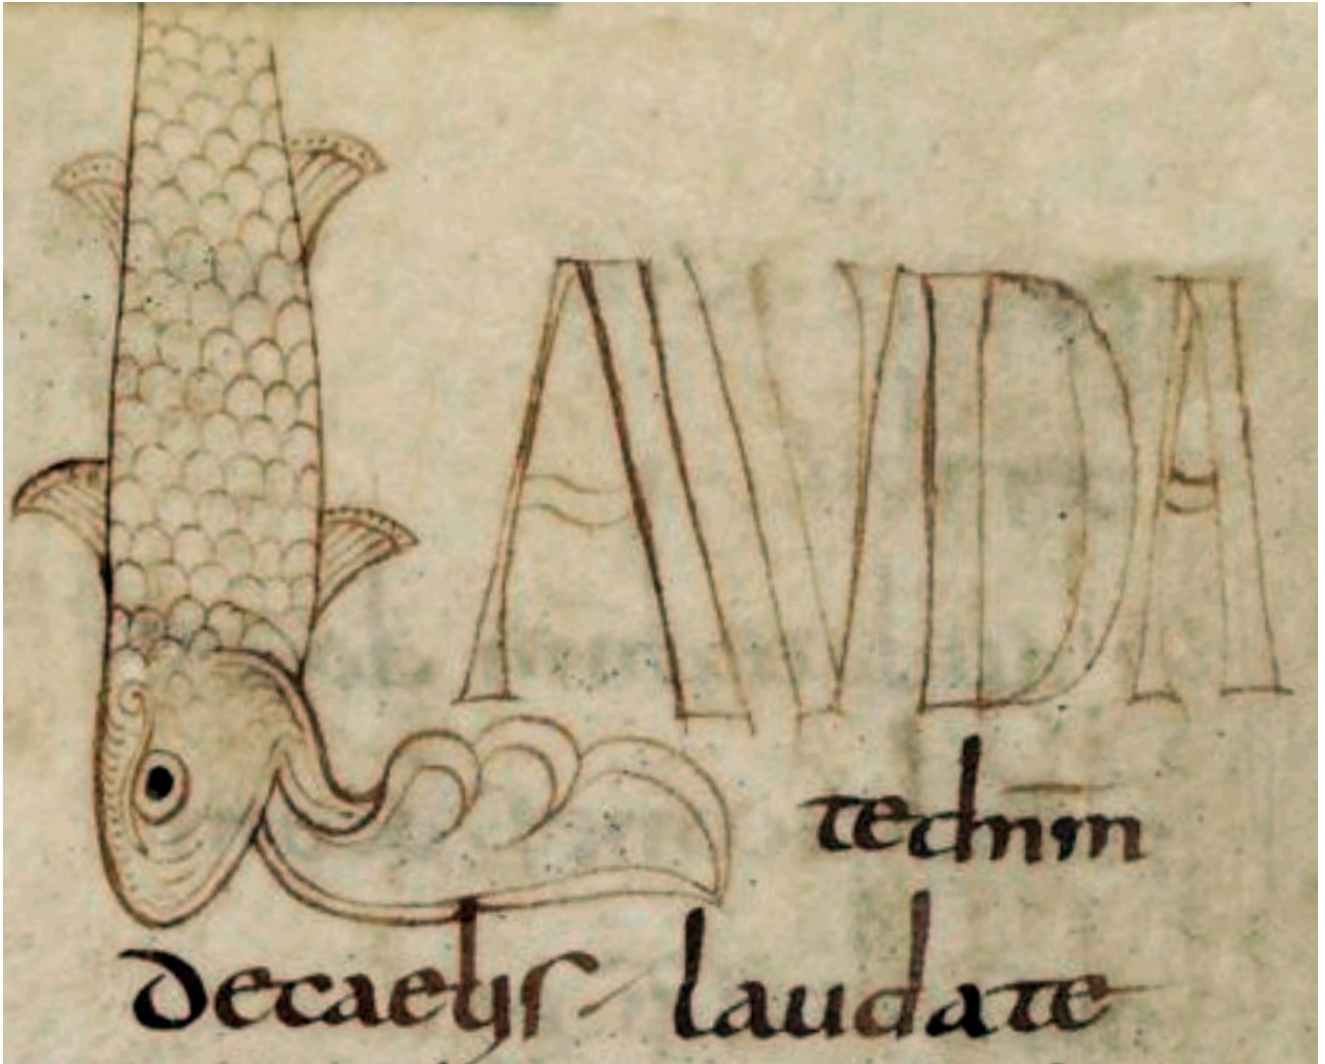 LAVDA
te dnm
de caelis laudate